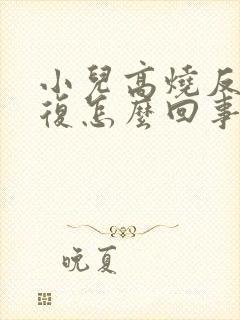 小兒高燒反
復怎麼回事
晚夏